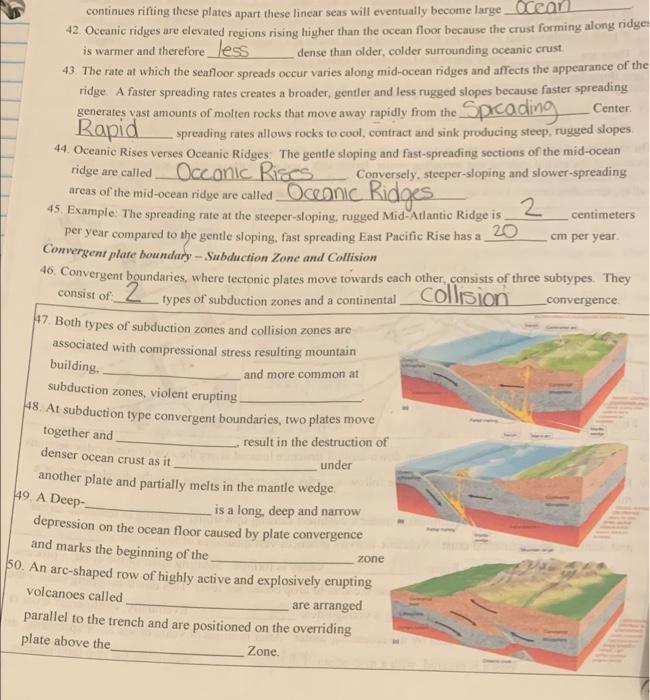 continues rifting these plates apart these linear seas will eventually become large Ocean
42. Oceanic ridges are elevated regions rising higher than the ocean floor because the crust forming along ridges
is warmer and therefore less dense than older, colder surrounding oceanic crust.
43. The rate at which the seafloor spreads occur varies along mid-ocean ridges and affects the appearance of the
ridge. A faster spreading rates creates a broader, gentler and less rugged slopes because faster spreading
generates vast amounts of molten rocks that move away rapidly from the Spreading Center.
Rapid spreading rates allows rocks to cool, contract and sink producing steep, rugged slopes.
44. Oceanic Rises verses Oceanic Ridges: The gentle sloping and fast-spreading sections of the mid-ocean
ridge are called Oceanic Rises Conversely, steeper-sloping and slower-spreading
areas of the mid-ocean ridge are called Oceanic Ridges
45. Example: The spreading rate at the steeper-sloping, rugged Mid-Atlantic Ridge is 2 centimeters
per year compared to the gentle sloping, fast spreading East Pacific Rise has a 20 cm per year.
Convergent plate boundary – Subduction Zone and Collision
46. Convergent boundaries, where tectonic plates move towards each other, consists of three subtypes. They
consist of: 2 types of subduction zones and a continental collision convergence.
47. Both types of subduction zones and collision zones are
associated with compressional stress resulting mountain
building, ____ and more common at
subduction zones, violent erupting ____.
48. At subduction type convergent boundaries, two plates move
together and ____, result in the destruction of
denser ocean crust as it ____ under
another plate and partially melts in the mantle wedge.
49. A Deep-____ is a long, deep and narrow
depression on the ocean floor caused by plate convergence
and marks the beginning of the ____ zone
50. An arc-shaped row of highly active and explosively erupting
volcanoes called ____ are arranged
parallel to the trench and are positioned on the overriding
plate above the ____ Zone.